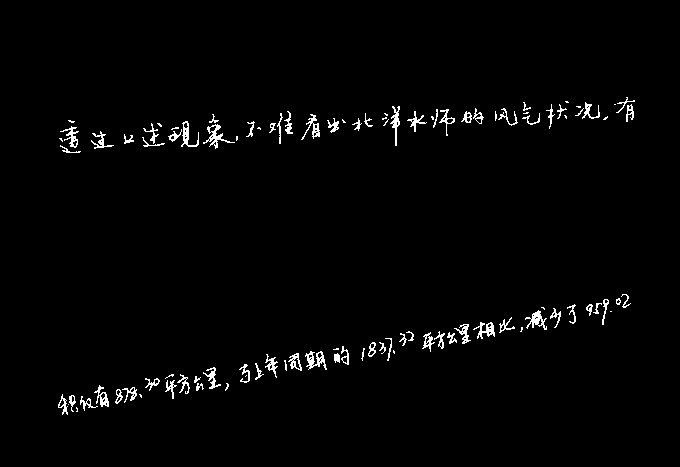 透过上述现象,不难看出北洋水师的风气状况,有
积仅有878.30平方公里,与上年同期的1837.32平方公里相比,减少了959.02